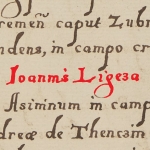 remen̄ caput Zubr
ndens, in campo cr
Joannis Ligeza
Asininum in camp
dreæ de Thenczm